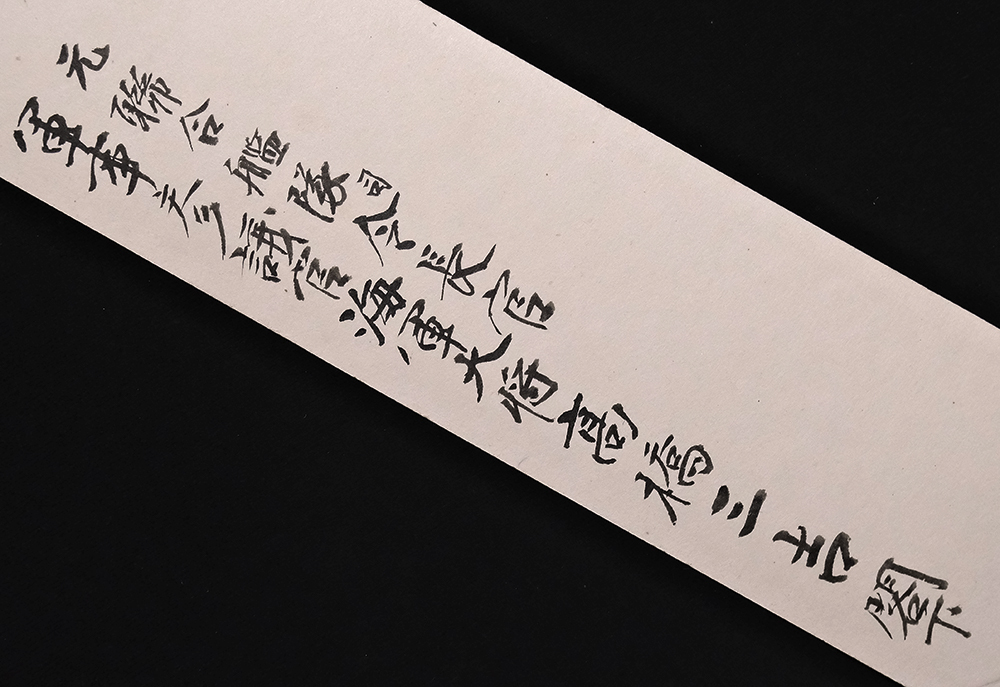 元聯合艦隊司令長官
軍事参議官海軍大将高橋三吉閣下